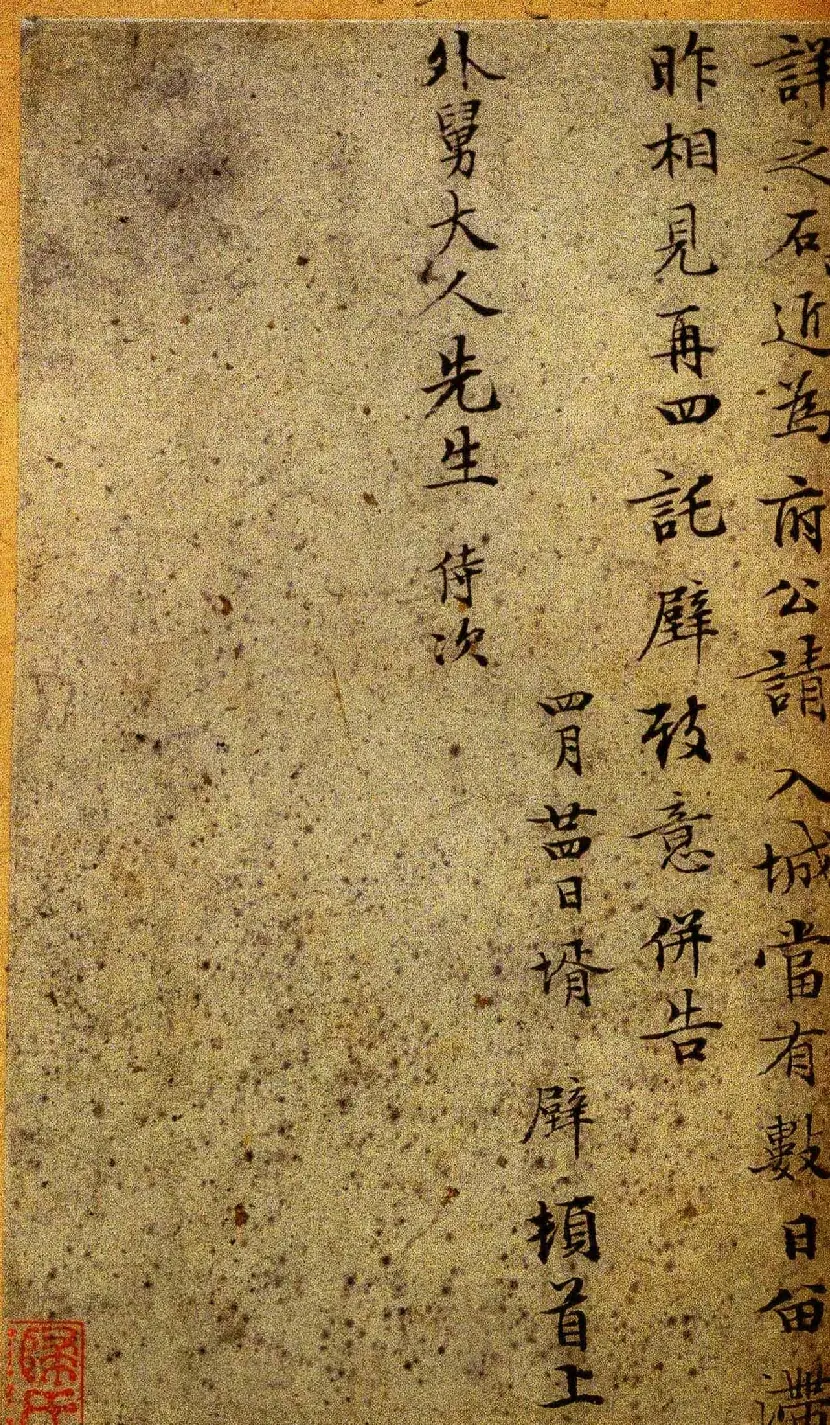 詳之石近為府公請入城當有數日留滯
昨相見再四託璧致意併告
四月廿四日壻 璧頓首上
外舅大人先生 侍次